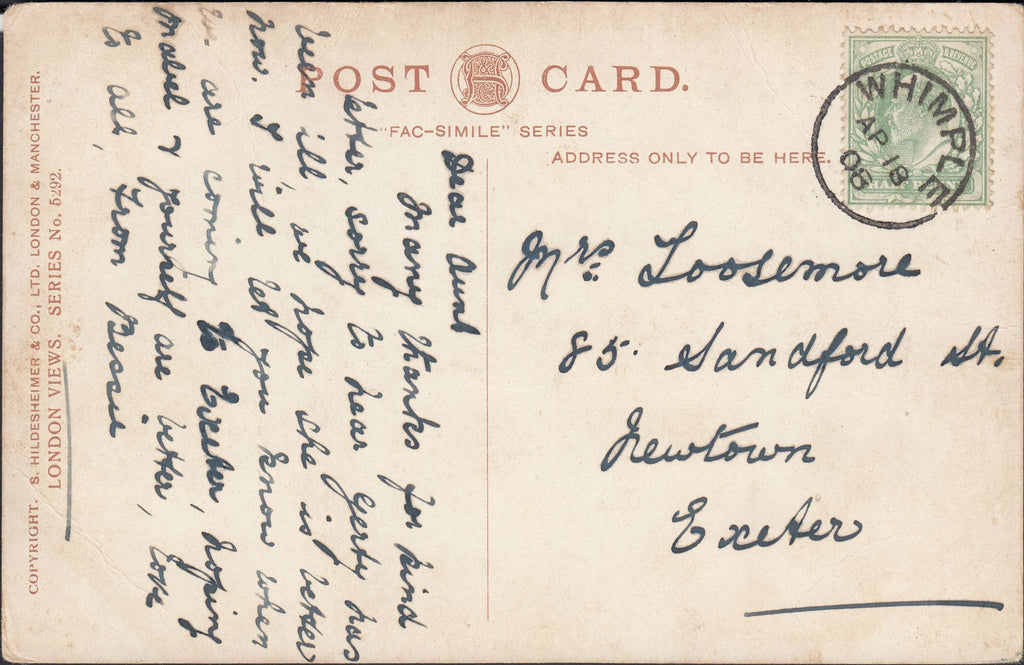 POST CARD.
"FAC-SIMILE" SERIES
ADDRESS ONLY TO BE HERE.
POSTAGE REVENUE
WHIMPLE
AP 18
08
Dear Aunt
Many thanks for kind
letter, sorry to hear Gerty has
been ill, we hope she is better
now. I will let you know when
we are coming to Exeter, hoping
Mabel & yourself are better, love
to all, from Bessie
Mrs Loosemore
85. Sandford St.
Newtown
Exeter
COPYRIGHT. S. HILDESHEIMER & CO., LTD. LONDON & MANCHESTER.
LONDON VIEWS. SERIES No. 5292.